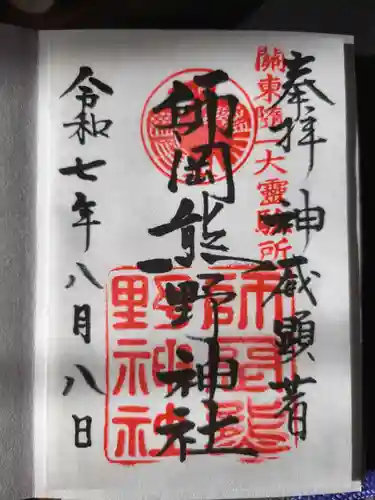 奉拝 神威顕著
關東随一大霊験所
師岡熊野神社
師岡熊
野神社
令和七年八月八日